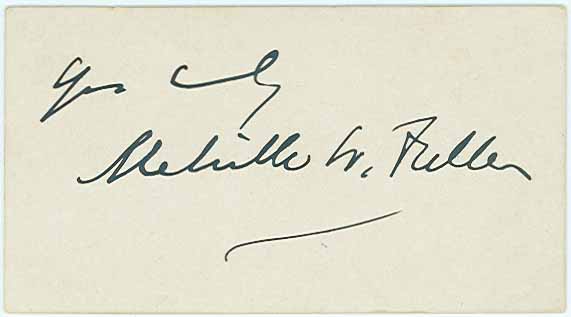 Yrs truly
Melville W. Fuller